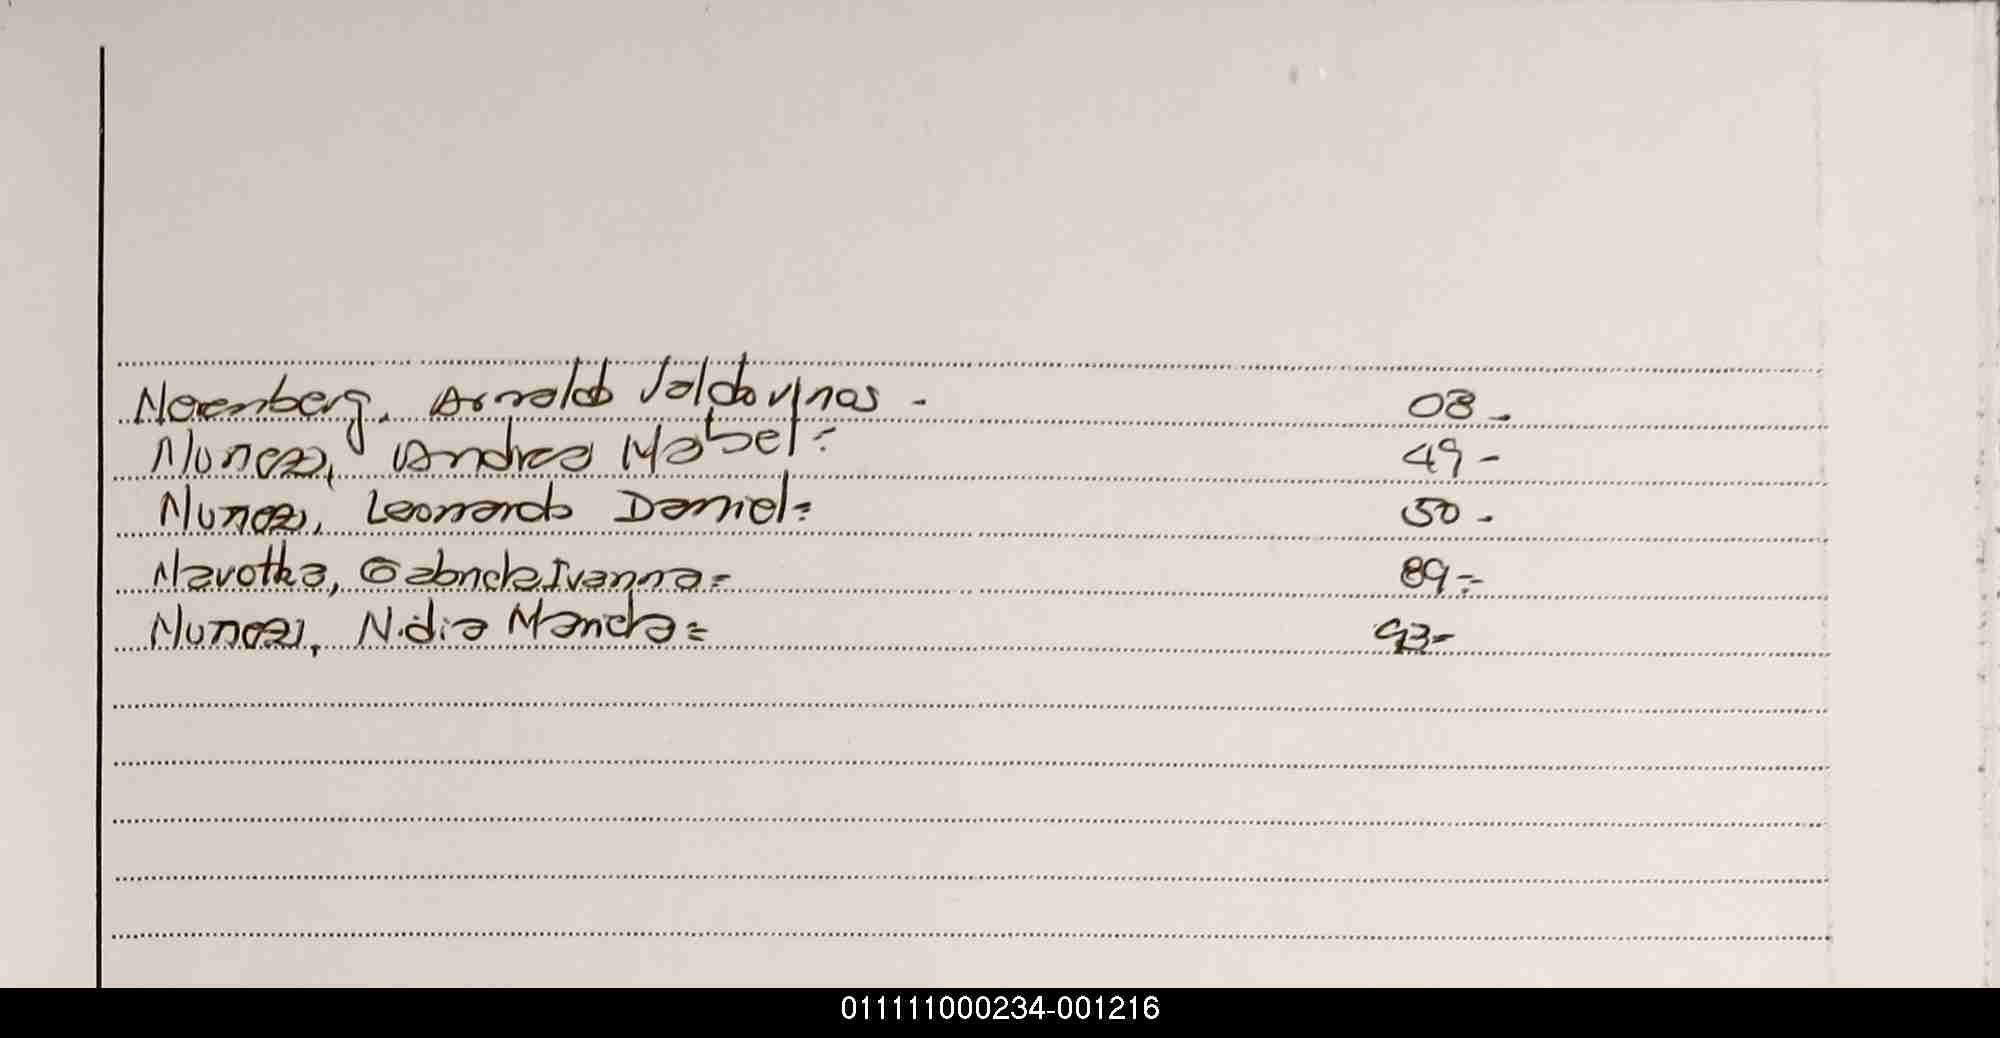 Noremberg, Arnoldo Valdovinos - 08 -
Nunez, Andrea Mabel = 49 -
Nunez, Leonardo Daniel = 50 -
Navotka, Gabriela Ivanna = 89 =
Nunez, Nidia Mariela = 93 -
011111000234-001216